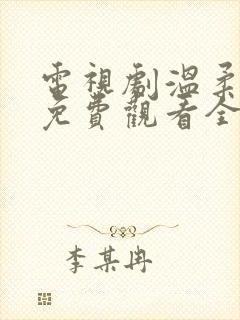 電視劇溫柔
免費觀看全
李某冉